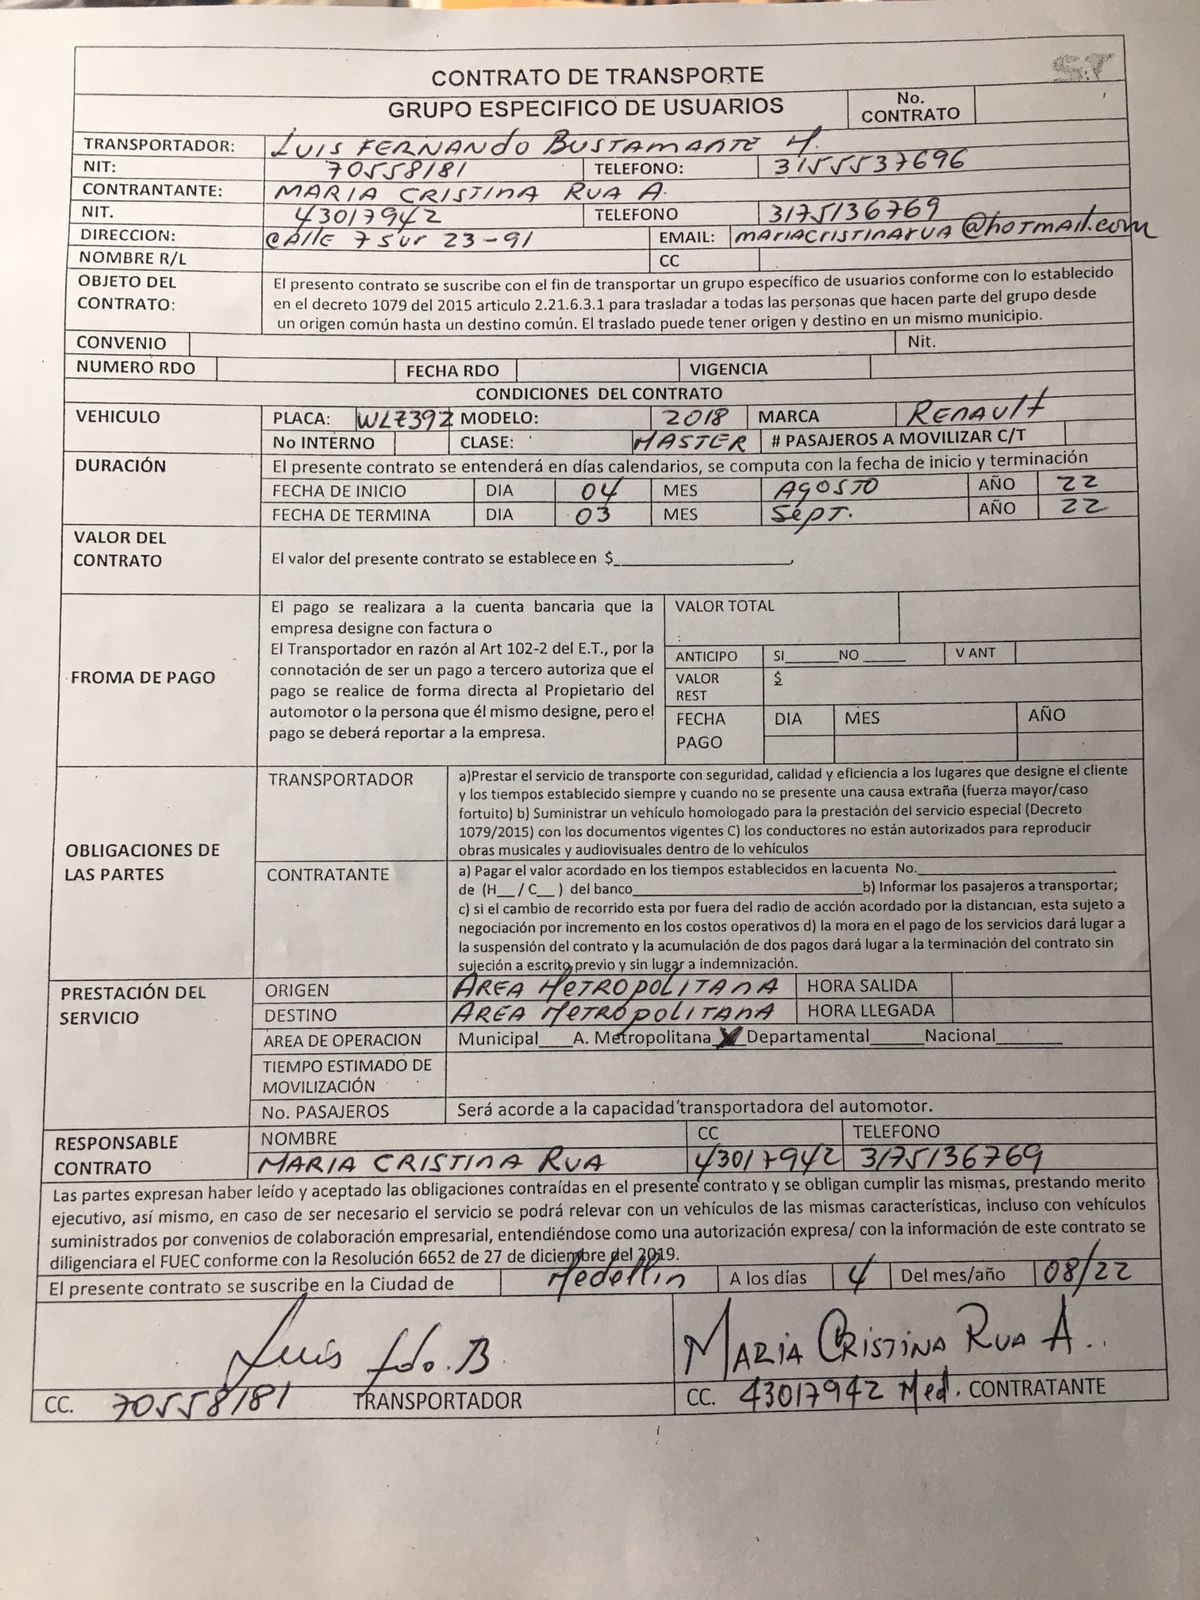 CONTRATO DE TRANSPORTE
GRUPO ESPECIFICO DE USUARIOS No. CONTRATO
TRANSPORTADOR: LUIS FERNANDO BUSTAMANTE H.
NIT: 70558181 TELEFONO: 3155537696
CONTRANTANTE: MARIA CRISTINA RUA A.
NIT. 43017942 TELEFONO 3175136769
DIRECCION: CAlle 7 Sur 23-91 EMAIL: mariacristinarua@hotmail.com
NOMBRE R/L CC
OBJETO DEL CONTRATO: El presento contrato se suscribe con el fin de transportar un grupo específico de usuarios conforme con lo establecido
en el decreto 1079 del 2015 articulo 2.21.6.3.1 para trasladar a todas las personas que hacen parte del grupo desde
un origen común hasta un destino común. El traslado puede tener origen y destino en un mismo municipio.
CONVENIO Nit.
NUMERO RDO FECHA RDO VIGENCIA
CONDICIONES DEL CONTRATO
VEHICULO PLACA: WLZ392 MODELO: 2018 MARCA RENAULT
No INTERNO CLASE: MASTER # PASAJEROS A MOVILIZAR C/T
DURACIÓN El presente contrato se entenderá en días calendarios, se computa con la fecha de inicio y terminación
FECHA DE INICIO DIA 04 MES AGOSTO AÑO 22
FECHA DE TERMINA DIA 03 MES SEPT. AÑO 22
VALOR DEL CONTRATO El valor del presente contrato se establece en $____________________,
FROMA DE PAGO
El pago se realizara a la cuenta bancaria que la
empresa designe con factura o
El Transportador en razón al Art 102-2 del E.T., por la
connotación de ser un pago a tercero autoriza que el
pago se realice de forma directa al Propietario del
automotor o la persona que él mismo designe, pero el
pago se deberá reportar a la empresa.
VALOR TOTAL
ANTICIPO SI______NO______ V ANT
VALOR REST $
FECHA PAGO DIA MES AÑO
OBLIGACIONES DE LAS PARTES
TRANSPORTADOR a)Prestar el servicio de transporte con seguridad, calidad y eficiencia a los lugares que designe el cliente
y los tiempos establecido siempre y cuando no se presente una causa extraña (fuerza mayor/caso
fortuito) b) Suministrar un vehículo homologado para la prestación del servicio especial (Decreto
1079/2015) con los documentos vigentes C) los conductores no están autorizados para reproducir
obras musicales y audiovisuales dentro de lo vehículos
CONTRATANTE a) Pagar el valor acordado en los tiempos establecidos en la cuenta No.____________________
de (H__/ C__ ) del banco____________________b) Informar los pasajeros a transportar;
c) si el cambio de recorrido esta por fuera del radio de acción acordado por la distancian, esta sujeto a
negociación por incremento en los costos operativos d) la mora en el pago de los servicios dará lugar a
la suspensión del contrato y la acumulación de dos pagos dará lugar a la terminación del contrato sin
sujeción a escrito previo y sin lugar a indemnización.
PRESTACIÓN DEL SERVICIO
ORIGEN AREA METROPOLITANA HORA SALIDA
DESTINO AREA METROPOLITANA HORA LLEGADA
AREA DE OPERACION Municipal____A. Metropolitana X Departamental______Nacional_______
TIEMPO ESTIMADO DE MOVILIZACIÓN
No. PASAJEROS Será acorde a la capacidad transportadora del automotor.
RESPONSABLE CONTRATO NOMBRE CC TELEFONO
MARIA CRISTINA RUA 43017942 3175136769
Las partes expresan haber leído y aceptado las obligaciones contraídas en el presente contrato y se obligan cumplir las mismas, prestando merito
ejecutivo, así mismo, en caso de ser necesario el servicio se podrá relevar con un vehículos de las mismas características, incluso con vehículos
suministrados por convenios de colaboración empresarial, entendiéndose como una autorización expresa/ con la información de este contrato se
diligenciara el FUEC conforme con la Resolución 6652 de 27 de diciembre del 2019.
El presente contrato se suscribe en la Ciudad de Medellin A los días 4 Del mes/año 08/22
Luis fdo. B. MARIA CRISTINA RUA A.
CC. 70558181 TRANSPORTADOR CC. 43017942 Med. CONTRATANTE